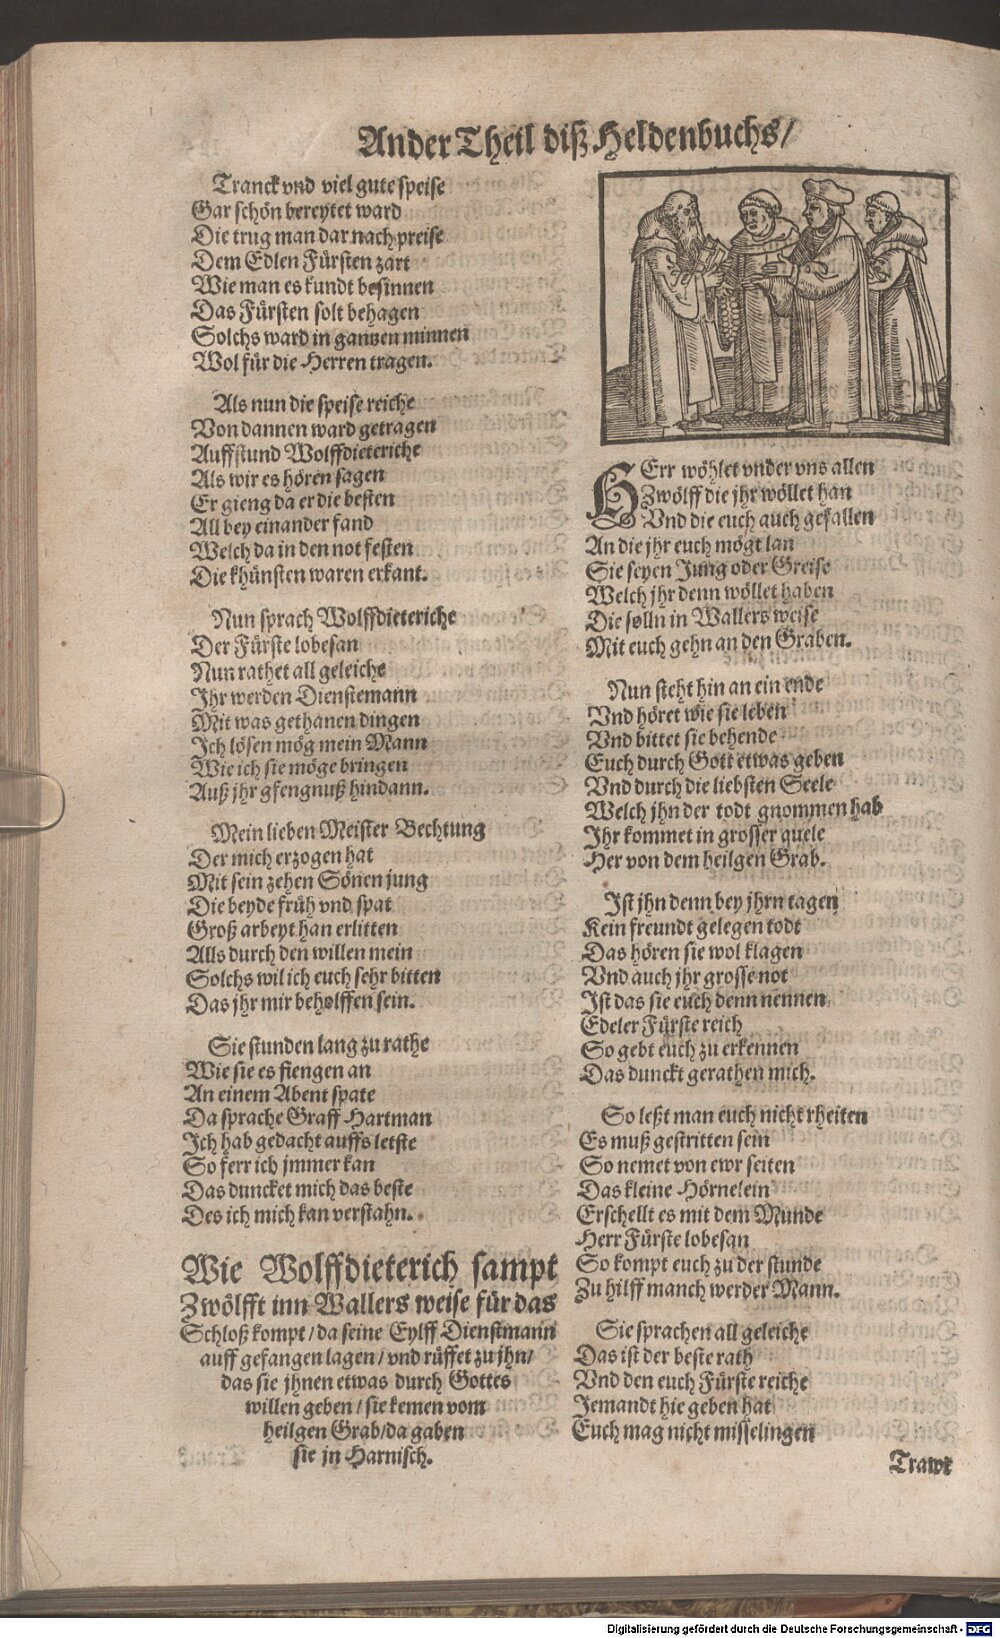 Ander Theil diß Heldenbuchs/
Tranck vnd viel gute speise
Gar schön bereytet ward
Die trug man dar nach preise
Dem Edlen Fürsten zart
Wie man es kundt besinnen
Das Fürsten solt behagen
Solchs ward in gantzen minnen
Wol für die Herren tragen.
Als nun die speise reiche
Von dannen ward getragen
Auffstund Wolffdieteriche
Als wir es hören sagen
Er gieng da er die besten
All bey einander fand
Welch da in den not festen
Die khünsten waren erkant.
Nun sprach Wolffdieteriche
Der Fürste lobesan
Nun rathet all geleiche
Ihr werden Dienstemann
Mit was gethanen dingen
Ich lösen mög mein Mann
Wie ich sie möge bringen
Auß jhr gfengnuß hindann.
Mein lieben Meister Bechtung
Der mich erzogen hat
Mit sein zehen Sönen jung
Die beyde früh vnd spat
Groß arbeyt han erlitten
Alls durch den willen mein
Solchs wil ich euch sehr bitten
Das jhr mir beholffen sein.
Sie stunden lang zu rathe
Wie sie es fiengen an
An einem Abent spate
Da sprache Graff Hartman
Ich hab gedacht auffs letste
So ferr ich jmmer kan
Das duncket mich das beste
Des ich mich kan verstahn.
Wie Wolffdieterich sampt
Zwölfft inn Wallers weise für das
Schloß kompt/da seine Eylff Dienstmann
auff gefangen lagen/vnd rüffet zu jhn/
das sie jhnen etwas durch Gottes
willen geben/sie kemen vom
heilgen Grab/da gaben
sie jn Harnisch.
HErr wöhlet vnder vns allen
Zwölff die jhr wöllet han
Vnd die euch auch gefallen
An die jhr euch mögt lan
Sie seyen Jung oder Greise
Welch jhr denn wöllet haben
Die solln in Wallers weise
Mit euch gehn an den Graben.
Nun steht hin an ein ende
Vnd höret wie sie leben
Vnd bittet sie behende
Euch durch Gott etwas geben
Vnd durch die liebsten Seele
Welch jhn der todt gnommen hab
Ihr kommet in grosser quele
Her von dem heilgen Grab.
Ist jhn denn bey jhrn tagen
Kein freundt gelegen todt
Das hören sie wol klagen
Vnd auch jhr grosse not
Ist das sie euch denn nennen
Edeler Fürste reich
So gebt euch zu erkennen
Das dunckt gerathen mich.
So leßt man euch nicht rheiten
Es muß gestritten sein
So nemet von ewr seiten
Das kleine Hörnelein
Erschellt es mit dem Munde
Herr Fürste lobesan
So kompt euch zu der stunde
Zu hilff manch werder Mann.
Sie sprachen all geleiche
Das ist der beste rath
Vnd den euch Fürste reiche
Jemandt hie geben hat
Euch mag nicht misselingen
Trawt
Digitalisierung gefördert durch die Deutsche Forschungsgemeinschaft - DFG